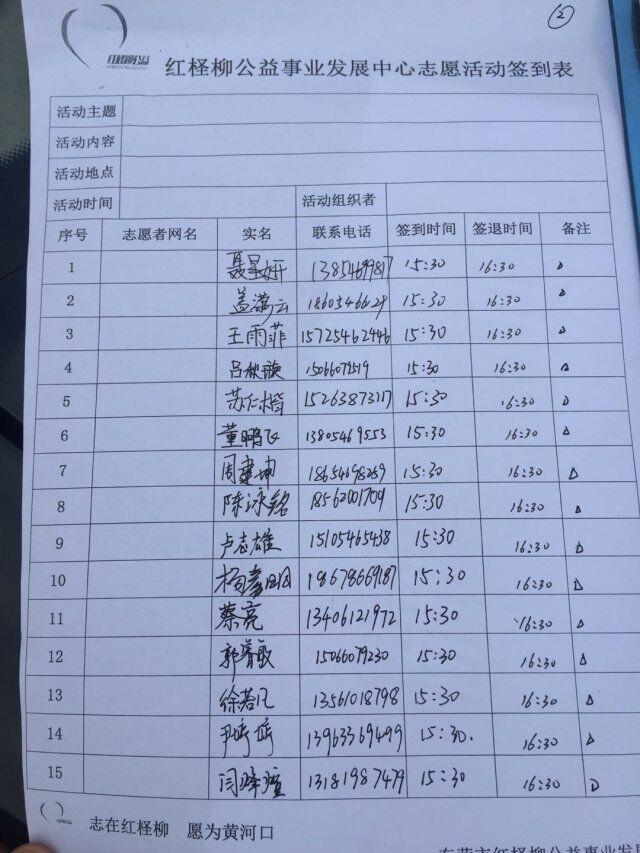 ②
红柽柳公益事业发展中心志愿活动签到表
活动主题
活动内容
活动地点
活动时间 活动组织者
序号 志愿者网名 实名 联系电话 签到时间 签退时间 备注
1 聂星妍 13854699817 15:30 16:30 △
2 盖满云 18605466129 15:30 16:30 △
3 王雨菲 15725462446 15:30 16:30 △
4 吕秋璇 15066072519 15:30 16:30 △
5 苏仁楷 15263873117 15:30 16:30 △
6 董鹏飞 13805469553 15:30 16:30 △
7 周建坤 18654698259 15:30 16:30 △
8 陈泳铭 18562001709 15:30 16:30 △
9 卢志雄 15105465438 15:30 16:30 △
10 18678669187 15:30 16:30 △
11 蔡亮 13406121972 15:30 16:30 △
12 郭睿敏 15066079230 15:30 16:30 △
13 徐若凡 13561018798 15:30 16:30 △
14 尹婷婷 13963369499 15:30. 16:30 △
15 闫峰瑄 13181987479 15:30 16:30 △
志在红柽柳 愿为黄河口
东营市红柽柳公益事业发展